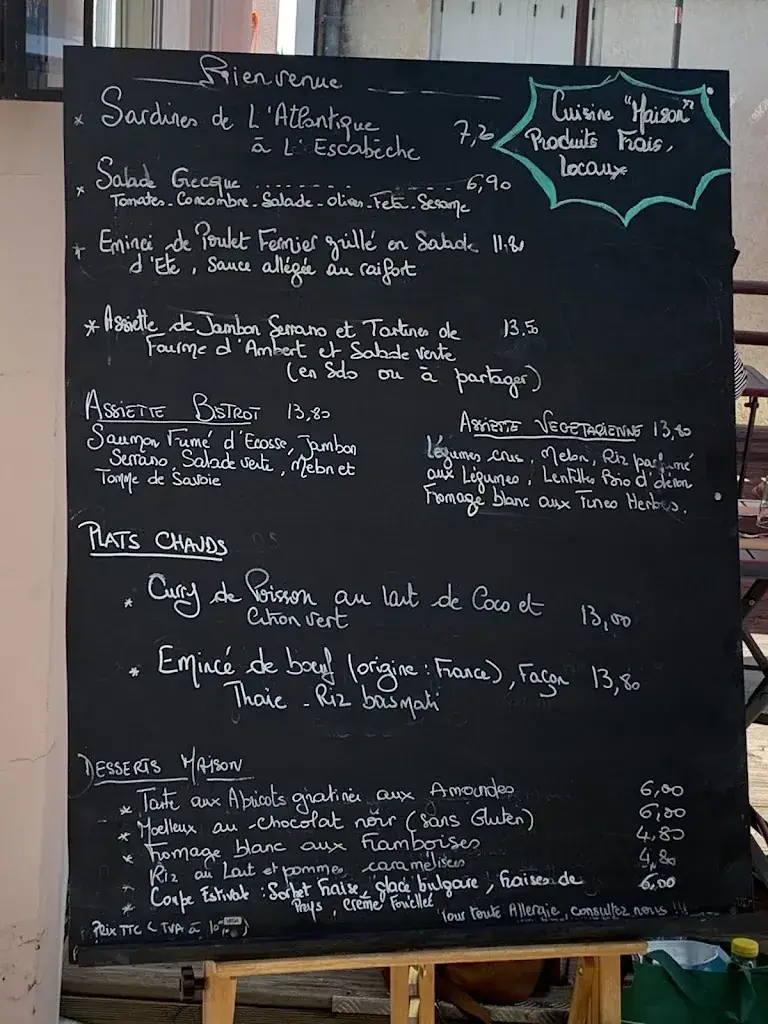 Bienvenue
* Sardines de L'Atlantique
à L'Escabèche 7,20
Cuisine "Maison"
Produits Frais,
Locaux
* Salade Grecque .......... 6,90
Tomates - Concombre - Salade - Olives - Feta - Sesame
* Emincé de Poulet Fermier grillé en Salade 11.80
d'Eté, Sauce allégée au raifort
* Assiette de Jambon Serrano et Tartines de 13,50
Fourme d'Ambert et Salade verte
(en Solo ou à partager)
ASSIETTE BISTROT 13,80
Saumon Fumé d'Ecosse, Jambon
Serrano, Salade verte, Melon et
Tomme de Savoie
ASSIETTE VEGETARIENNE 13,80
Légumes crus, Melon, Riz parfumé
aux Légumes, Lentilles
Fromage blanc aux Fines Herbes.
PLATS CHAUDS
* Curry de Poisson au lait de Coco et
Citron vert 13,00
* Emincé de boeuf (origine : France), Façon 13,80
Thaïe - Riz basmati
DESSERTS MAISON
* Tarte aux Abricots gratinée aux Amandes 6,00
* Moelleux au chocolat noir (Sans Gluten) 6,00
* Fromage blanc aux Framboises 4,80
* Riz au Lait et pommes caramélisées 4,80
* Coupe Estivale : Sorbet fraise, glace bulgare, fraises de 6,00
Pays, crème
Prix TTC (TVA à 10%)
Pour toute Allergie, consultez nous !!!